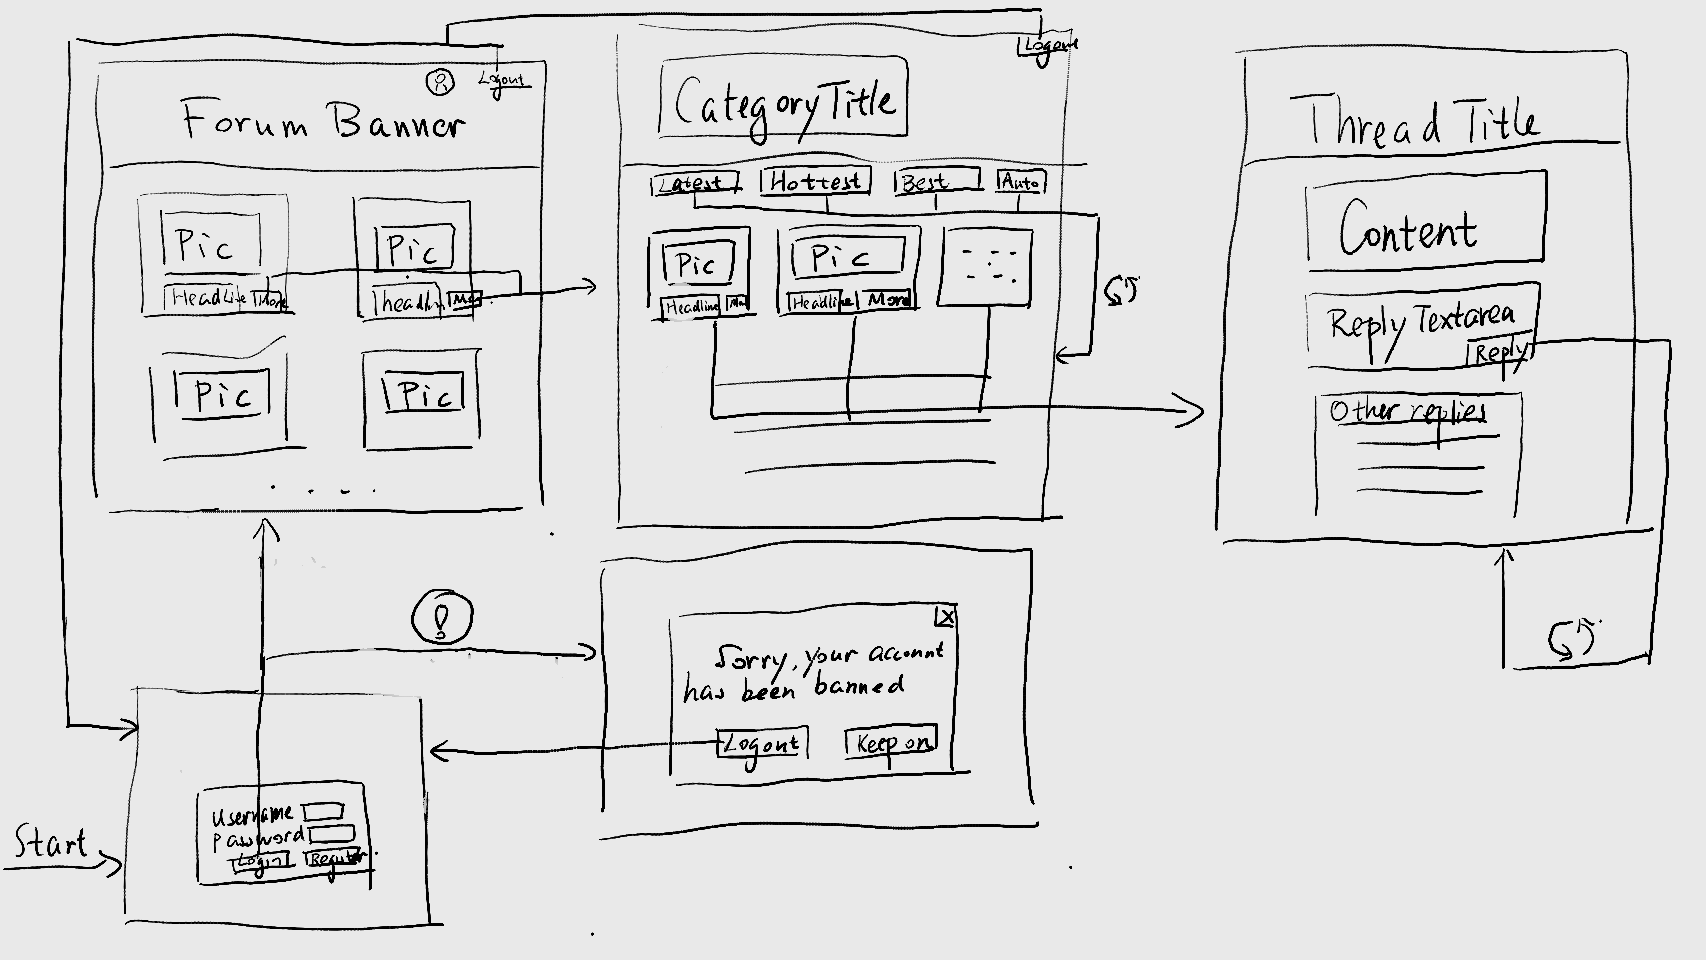 Logout
Forum Banner
Pic
Headline More
Pic
headlin
Pic
Pic
Logout
Category Title
Latest Hottest Best Auto
Pic
Headline
Pic
Headline More
Thread Title
Content
Reply Textarea
Reply
Other replies
Sorry, your account
has been banned
Logout Keep on
Start
Username
Password
Login Register